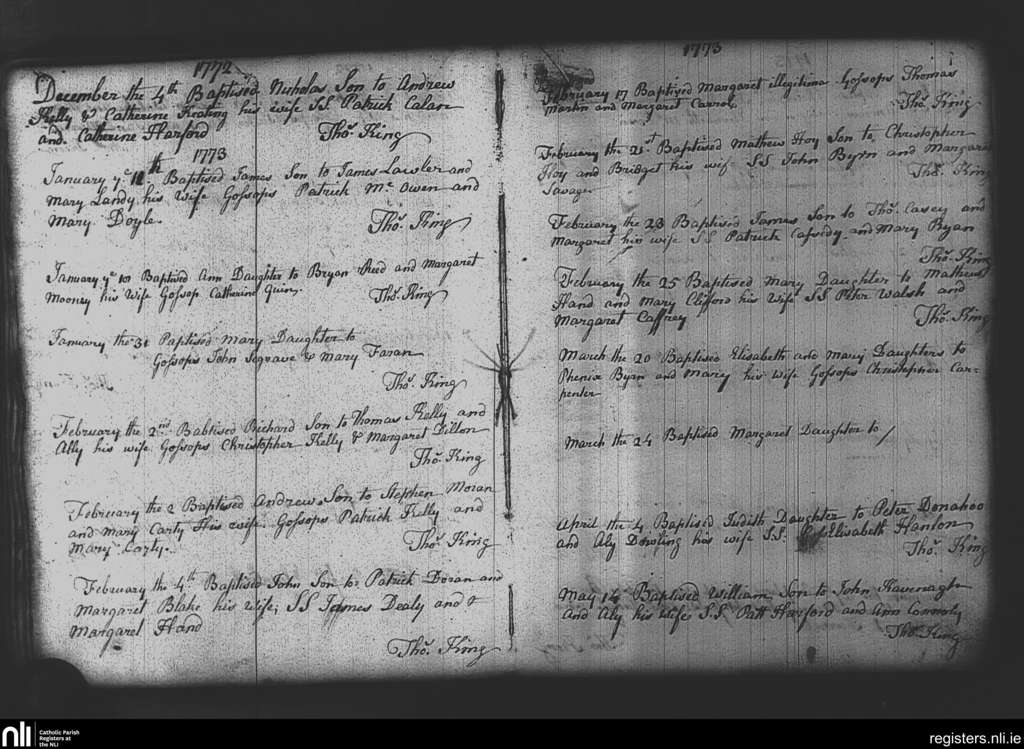 1772
December the 4th Baptised Nicholas Son to Andrew
Kelly & Catherine Keating his wife SS Patrick Calan
and Catherine Harford Thos. King
1773
January ye 11th Baptised James Son to James Lawler and
Mary Landy his Wife Gossops Patrick Mc. Owen and
Mary Doyle. Thos. King
January ye 10 Baptised Ann Daughter to Bryan Reed and Margaret
Mooney his Wife Gossop Catherine Quin. Thos. King
January the 31 Baptised Mary Daughter to
Gossops John Segrave & Mary Faran
Thos. King
February the 2nd Babtised Richard Son to Thomas Kelly and
Ally his wife Gossops Christopher Kelly & Margaret Dillon
Thos. King
February the 2 Baptised Andrew Son to Stephen Moran
and Mary Carty His wife Gossops Patrick Kelly and
Mary Carty. Thos. King
February the 4th Baptised John Son to Patrick Doran and
Margaret Blake his wife; SS James Dealy and
Margaret Hand
Thos. King
1773
February 17 Baptised Margaret illigitima Gossops Thomas
Martin and Margaret Carrol Thos. King
February the 21st Baptised Mathew Hoy Son to Christopher
Hoy and Bridget his wife SS John Byrn and Margaret
Savage Thos. King
February the 23 Baptised James Son to Thos. Casey and
Margaret his wife SS Patrick Cassedy and Mary Ryan
Thos. King
February the 25 Baptised Mary Daughter to Matheus
Hand and Mary Clifford his Wife SS Peter Walsh and
Margaret Caffrey Thos. King
March the 20 Baptised Elisabeth and Mary Daughters to
Phenix Byrn and Mary his wife Gossops Christopher Car-
penter
March the 24 Baptised Margaret Daughter to /
April the 4 Baptised Judith Daughter to Peter Donahoo
and Aly Dowling his wife SS: Elisabeth Hanlon
Thos. King
May 14 Baptised William Son to John Kavenagh
and Aly his wife S.S Patt Harford and Ann Connoly
Thos. King
nli
Catholic Parish
Registers at
the NLI
registers.nli.ie